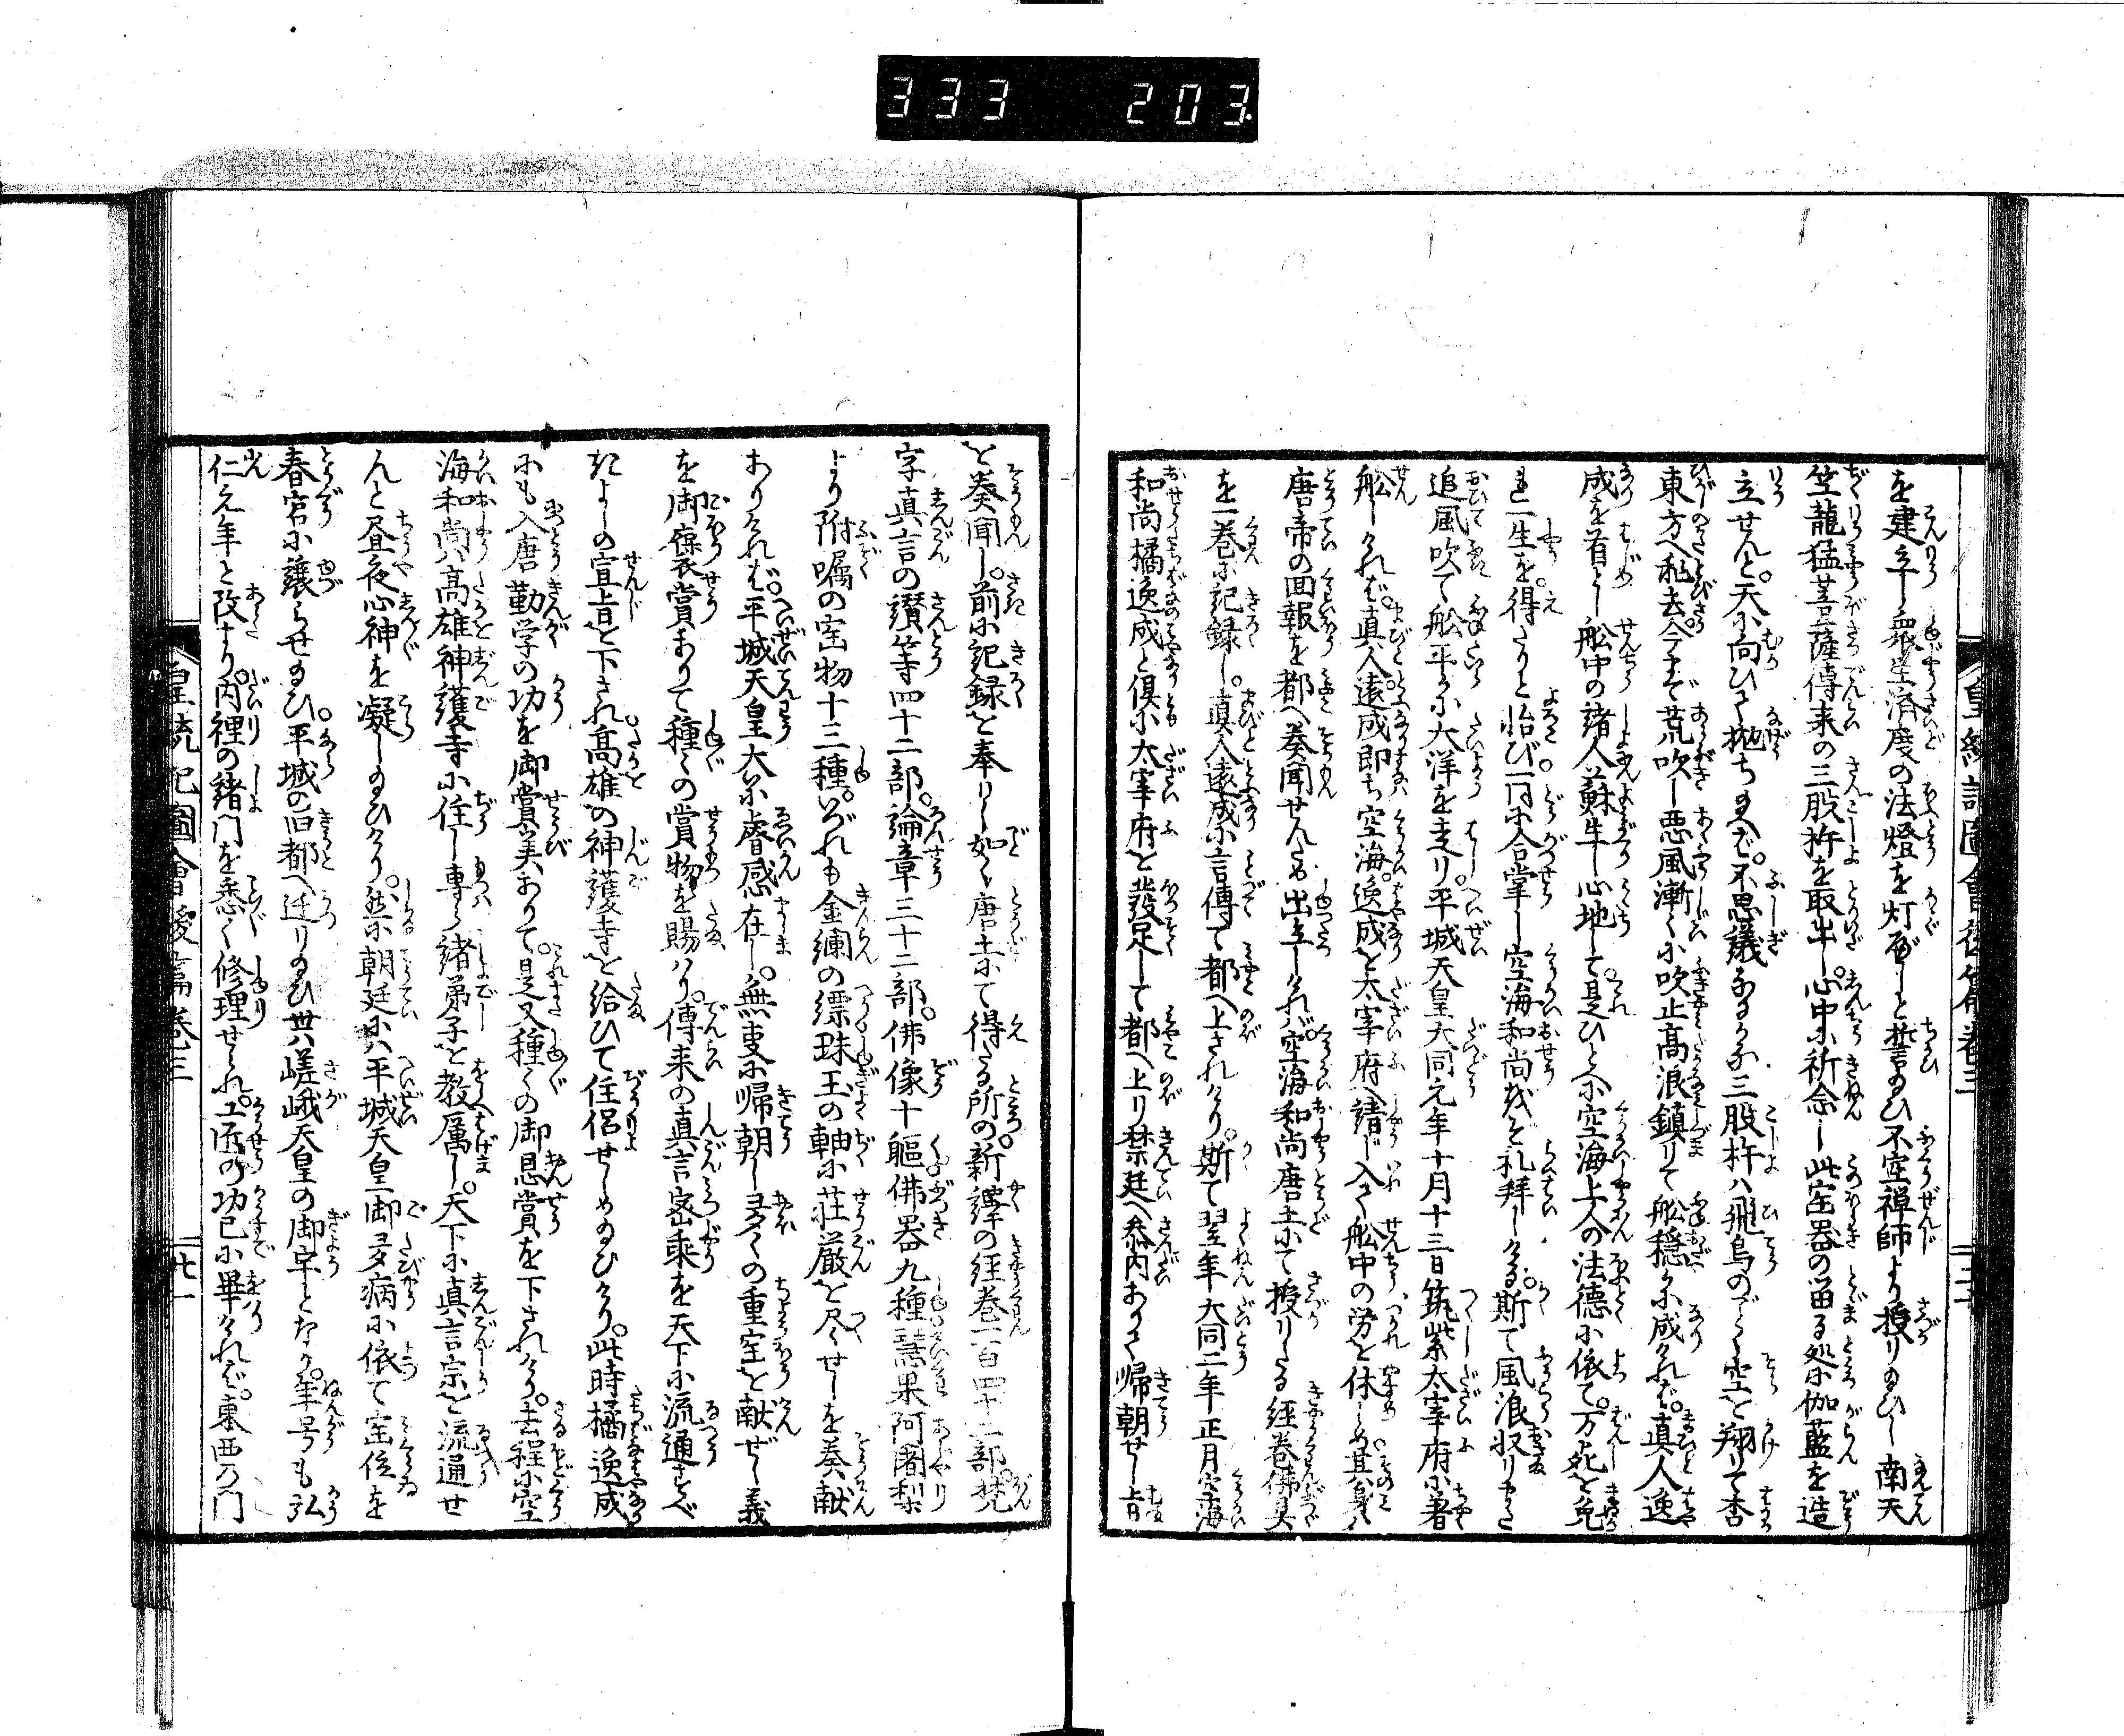 333 203
を建立し衆生済度の法燈を灯べしと誓ひ不空禅師より授り給ひし南天
竺龍猛菩薩傳来の三股杵を取出し心中に祈念し此宝器の留る処に伽藍を造
立せんと。天に向ひて抛ち給へば。不思議なるかな三股杵ハ飛鳥のごとく空を翔りて杳
東方へ飛去今まで荒吹し悪風漸々に吹止高浪鎮りて船穏に成ければ。真人逸
成を首とし船中の諸人蘇生し心地して是ひとへに空海上人の法徳に依て。万死を免
れ一生を得たりと怡び一同に合掌し空海和尚を礼拝しける。斯て風浪収りやがて
追風吹て船平かに大洋を走り平城天皇大同元年十月十三日筑紫太宰府に著
船しければ。真人遠成即ち空海。逸成を太宰府へ請じ入て船中の労を休しめ其身ハ
唐帝の回報を都へ奏聞せんため出立しければ。空海和尚唐土にて授りたる経巻佛具
を一巻に記録し。真人遠成に言傳て都へ上されけり。斯て翌年大同二年正月空海
和尚橘逸成と倶に太宰府を発足して都へ上り禁廷へ参内ありて帰朝せし旨
を奏聞し。前に記録を奉りし如く唐土にて得たる所の新譯の経巻一百四十二部。梵
字真言の讃等四十二部。論章三十二部。佛像十軀佛器九種慧果阿闍梨
より附嘱の宝物十三種。いづれも金襴の縹珠玉の軸に荘厳を尽くせしを奏献
ありければ。平城天皇大に睿感在し。無事に帰朝し多くの重宝を献ぜし義
を御褒賞ありて種々の賞物を賜ハり。傳来の真言密乗を天下に流通すべ
きよしの宣旨を下され。高雄の神護寺を給ひて住侶せしめ給ひけり。此時橘逸成
にも入唐勤学の功を御賞美ありて。是又種々の御恩賞を下されけり。去程に空
海和尚ハ高雄神護寺に住し専ら諸弟子を教厲し。天下に真言宗を流通せ
んと昼夜心神を凝し給ひけり。然に朝廷にハ平城天皇御多病に依て宝位を
春宮に譲らせ給ひ。平城の旧都へ迁り給ひ世ハ嵯峨天皇の御宇となり。年号も弘
仁元年と改まり。内裡の諸門を悉く修理せられ。工匠の功已に畢ければ。東西の門
皇統記圖會後篇巻三 廿一